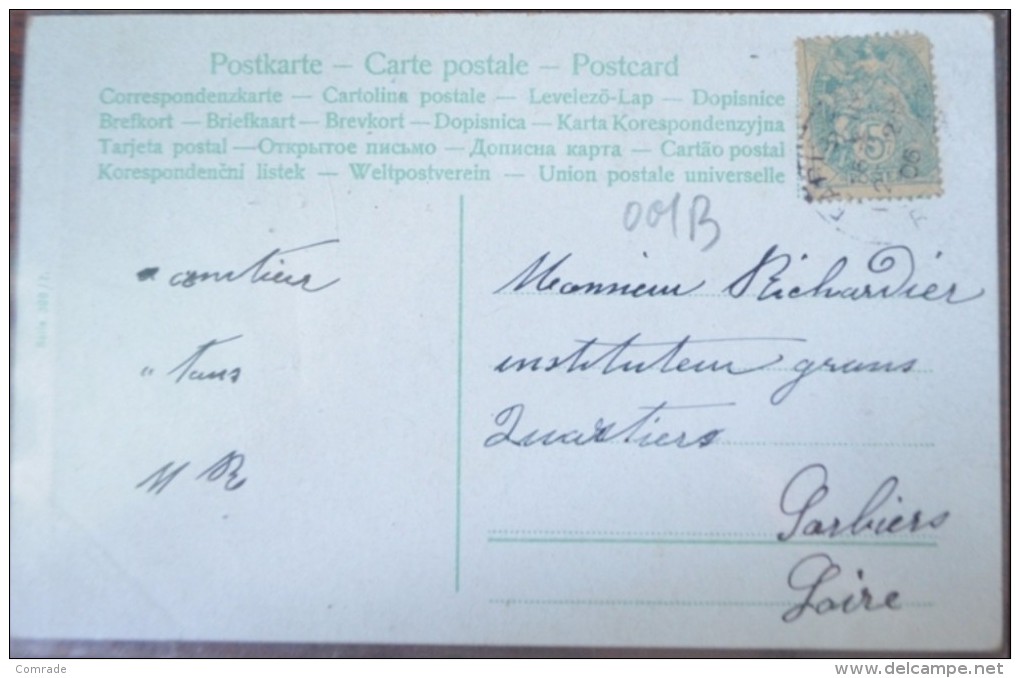 Postkarte – Carte postale – Postcard
Correspondenzkarte – Cartolina postale – Levelező-Lap – Dopisnice
Brefkort – Briefkaart – Brevkort – Dopisnica – Karta Korespondenzyjna
Tarjeta postal – Открытое письмо – Дописна карта – Cartão postal
Korespondenční listek – Weltpostverein – Union postale universelle
5
06
001B
Monsieur Richardier
instituteur grans
Quartiers
Sorbiers
Loire
" Tans
M R
Comrade
www.delcampe.net